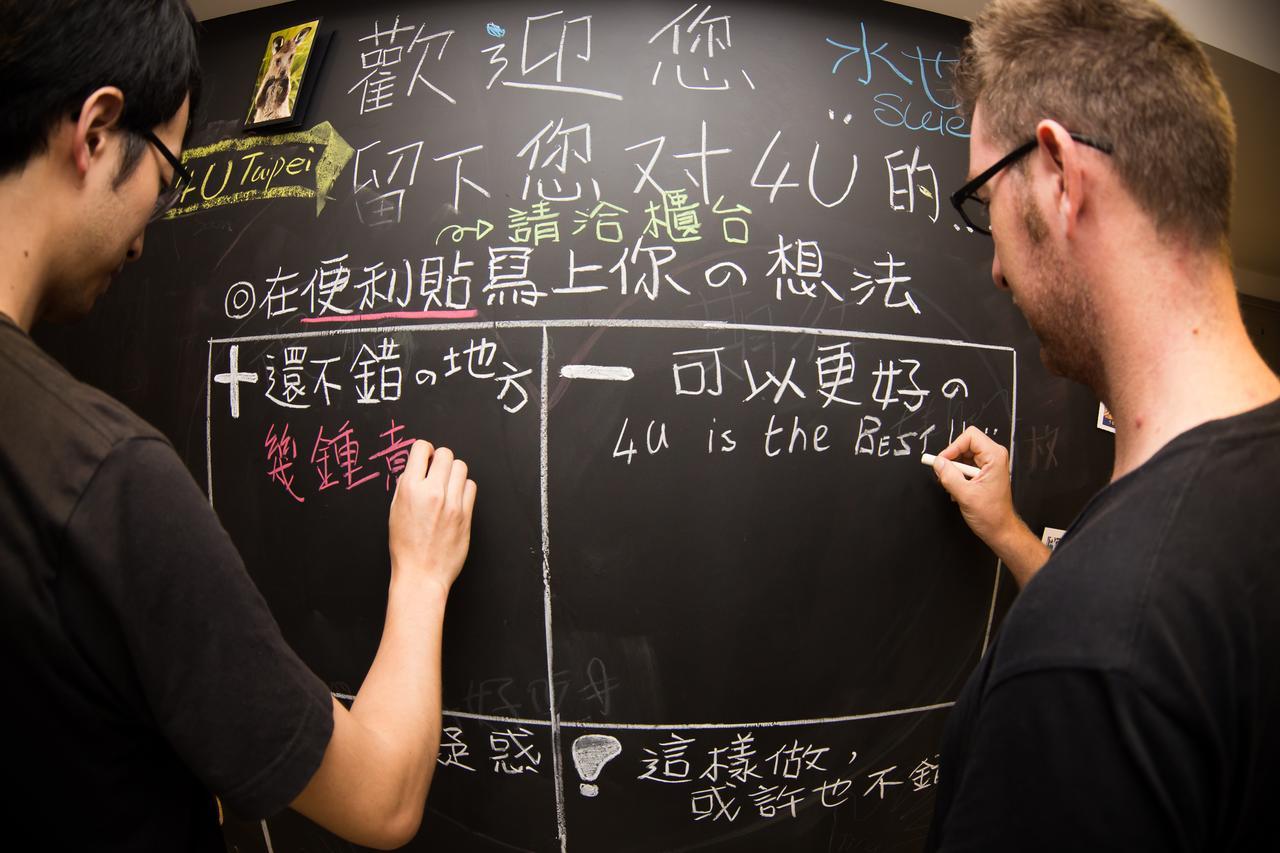 歡迎您
水世
4U Taipei
留下您对4U的
請洽櫃台
◎在便利貼寫上你の想法
+還不錯の地方
幾鍾
- 可以更好の
4U is the BEST
疑惑
! 這樣做,
或許也不錯